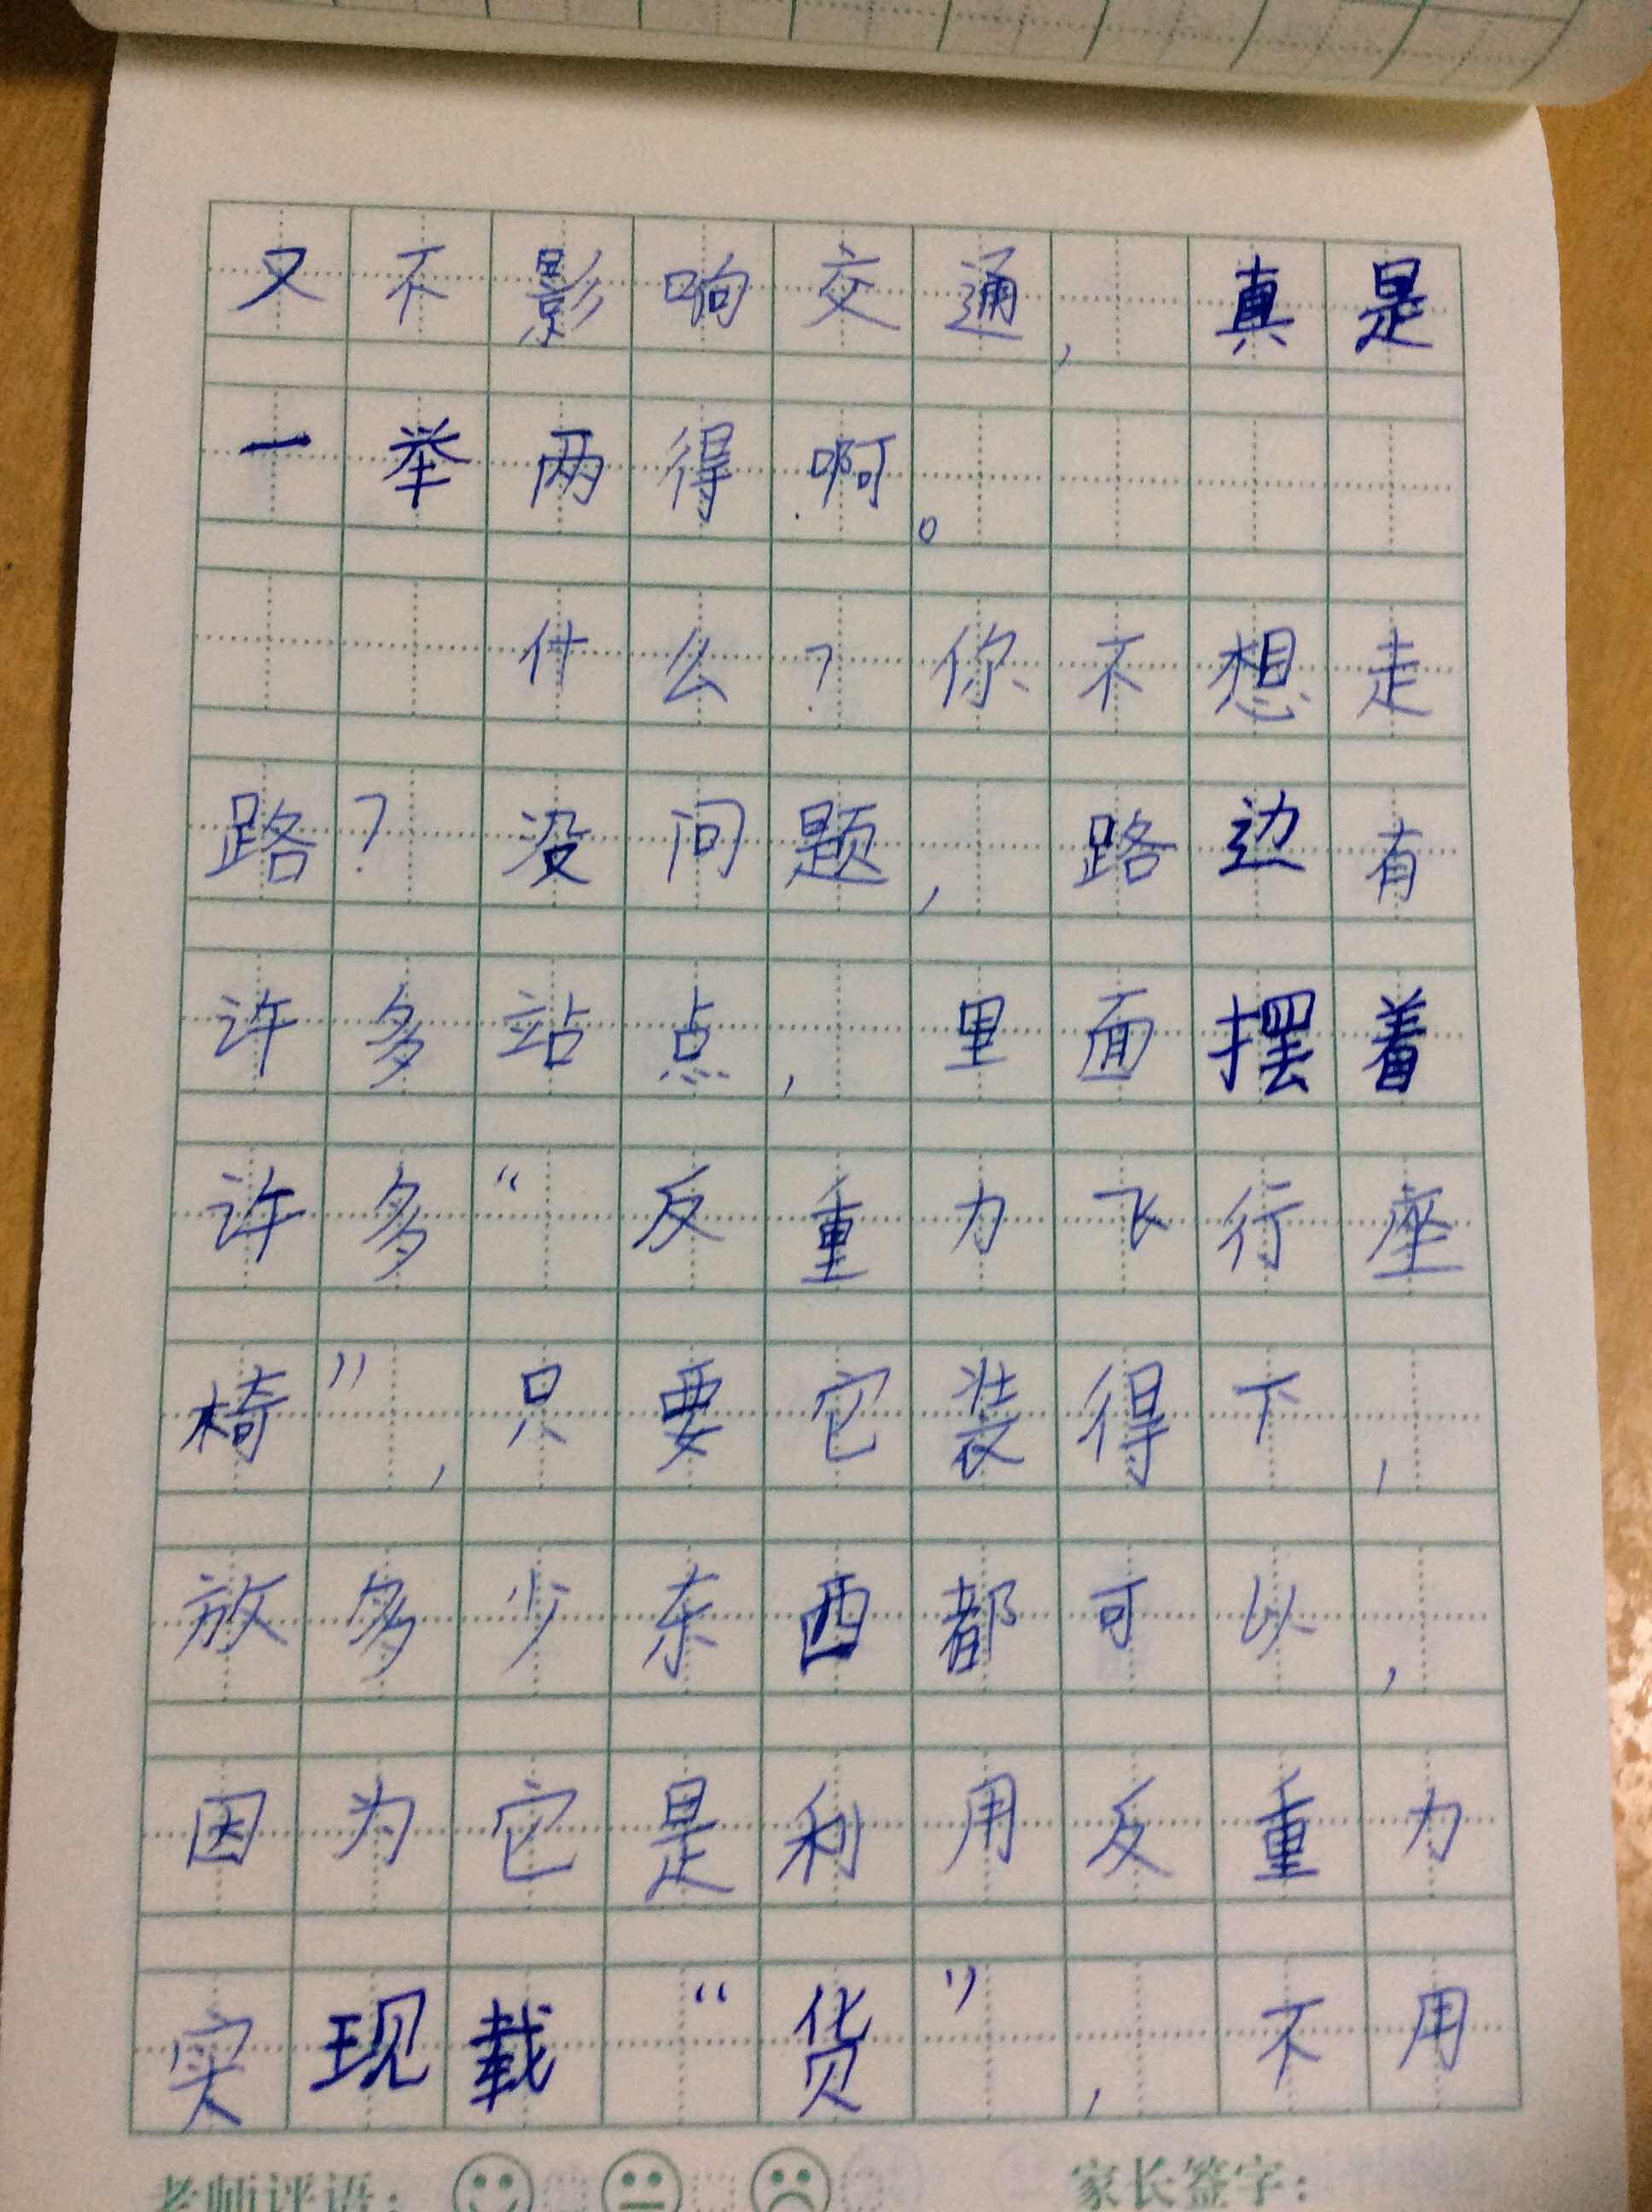 又不影响交通，真是
一举两得啊。
什么？你不想走
路？没问题，路边有
许多站点，里面摆着
许多“反重力飞行座
椅”，只要它装得下，
放多少东西都可以，
因为它是利用反重力
实现载“货”，不用
老师评语： 家长签字：